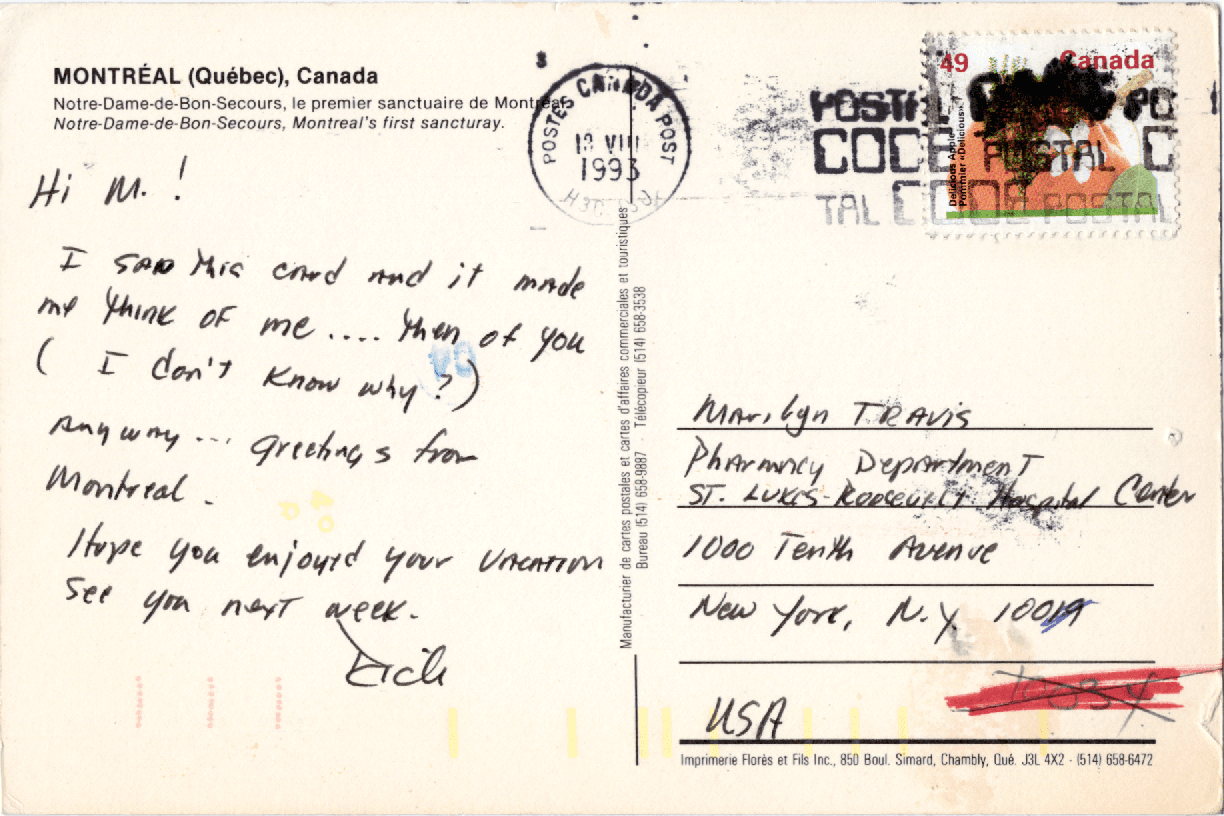 MONTRÉAL (Québec), Canada
Notre-Dame-de-Bon-Secours, le premier sanctuaire de Montréal.
Notre-Dame-de-Bon-Secours, Montreal's first sancturay.
Hi M. !
I saw this card and it made
me think of me .... then of you
( I don't know why ? )
Anyway ... greetings from
Montreal .
Hope you enjoyed your vacation
See you next week.
POSTES CANADA POST
VIII
1993
49 Canada
Delicious Apple
Pommier «Delicious»
POSTAL
CODE POSTAL C
TAL CODE POSTAL
Manufacturier de cartes postales et cartes d'affaires commerciales et touristiques
Bureau (514) 658-9887 · Télécopieur (514) 658-3538
Marilyn Travis
Pharmacy Department
St. Lukes-Roosevelt Hospital Center
1000 Tenth Avenue
New York, N.Y. 10019
USA
Imprimerie Florès et Fils Inc., 850 Boul. Simard, Chambly, Qué. J3L 4X2 - (514) 658-6472